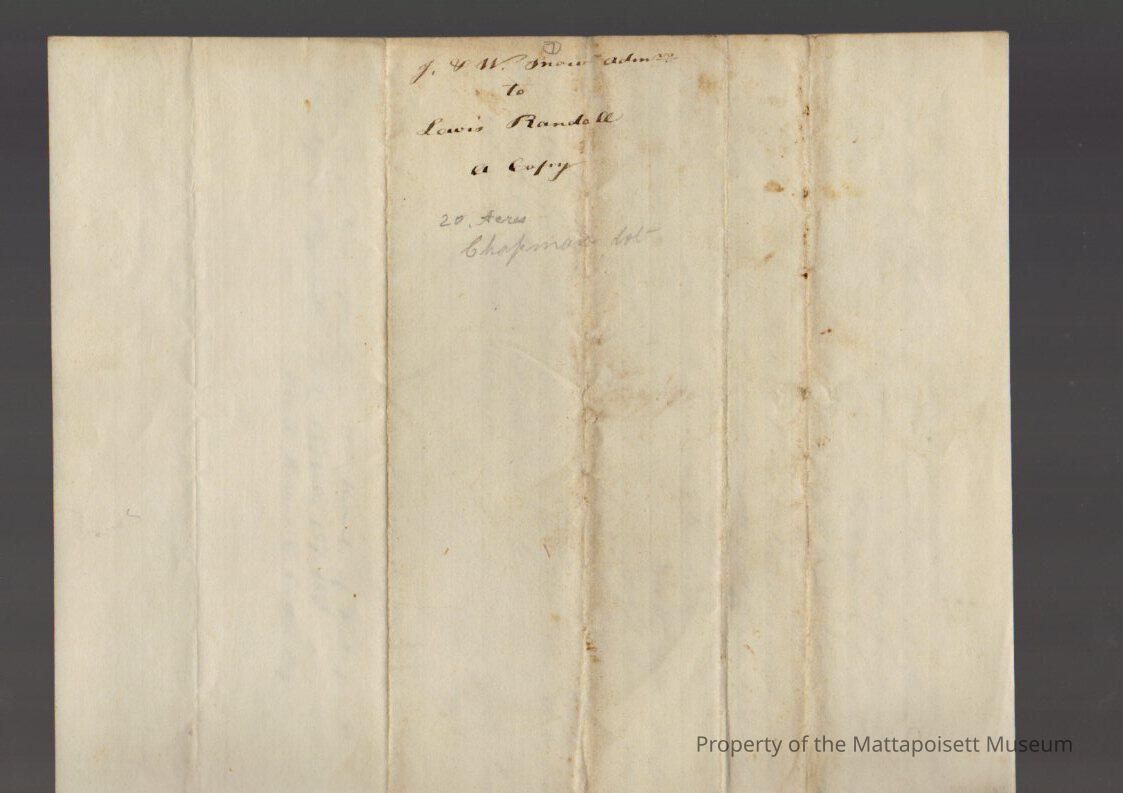 ①
J. & W. Snow Adm^rs
to
Lewis Randall
A Copy
20. Acres
Chapman Lot
Property of the Mattapoisett Museum